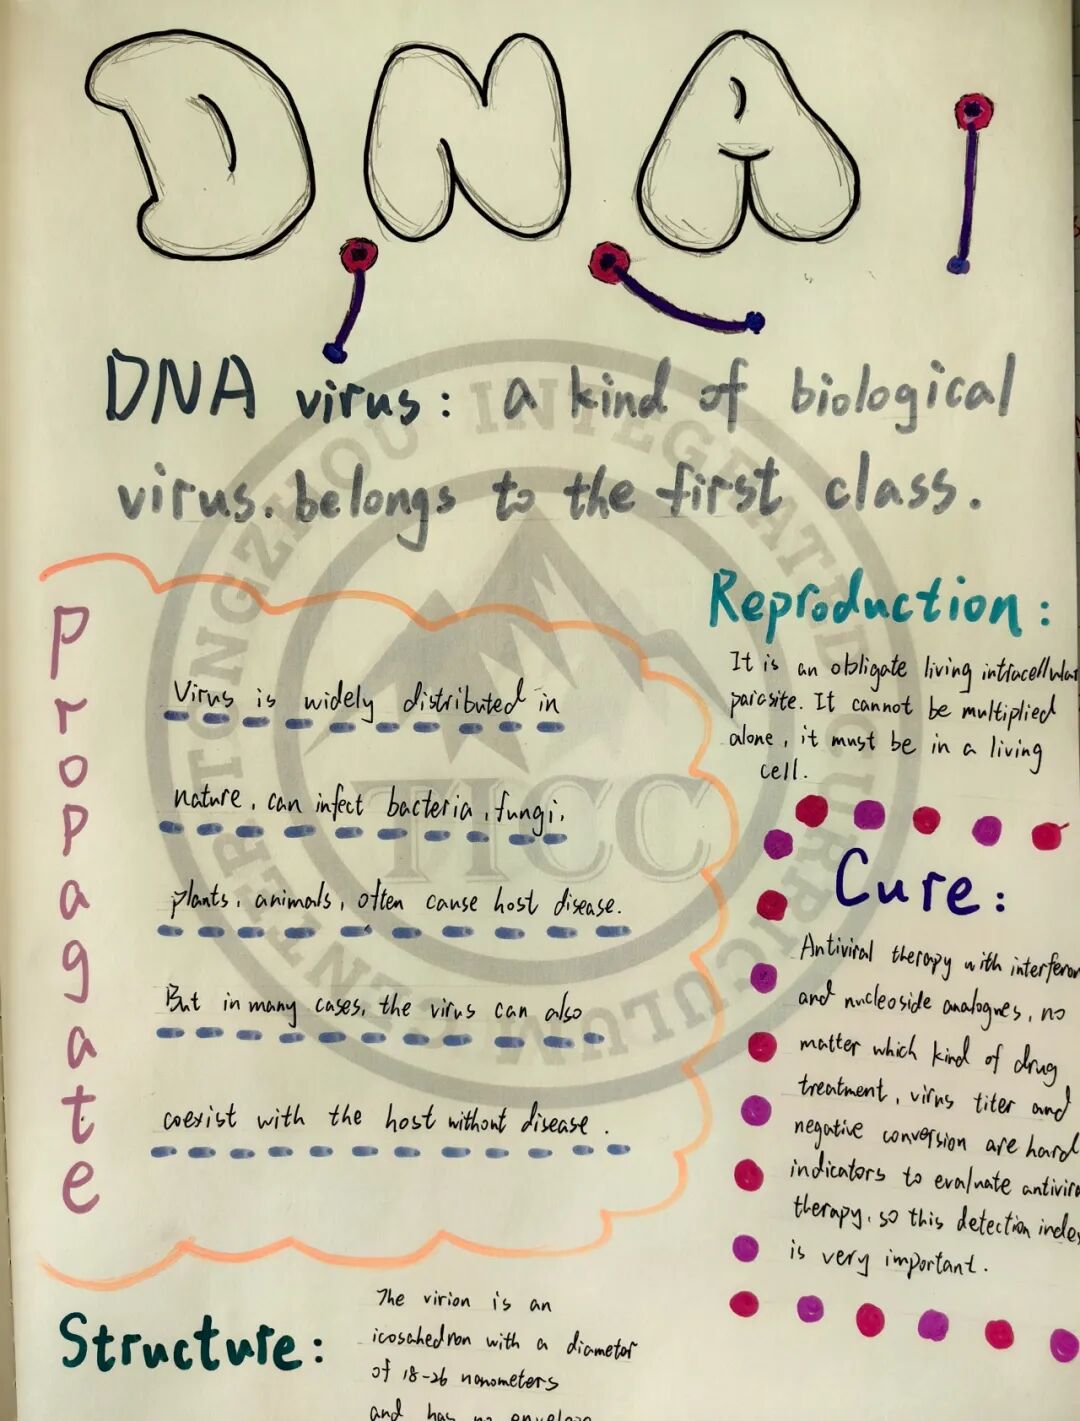 DNA
DNA virus: a kind of biological
virus. belongs to the first class.
Propagate
Virus is widely distributed in
nature, can infect bacteria, fungi,
plants, animals, often cause host disease.
But in many cases, the virus can also
coexist with the host without disease.
Reproduction:
It is an obligate living intracellular
parasite. It cannot be multiplied
alone, it must be in a living
cell.
Cure:
Antiviral therapy with interferon
and nucleoside analogues, no
matter which kind of drug
treatment, virus titer and
negative conversion are hard
indicators to evaluate antivira
therapy, so this detection index
is very important.
Structure:
The virion is an
icosahedron with a diameter
of 18-26 nanometers
and has no envelope
TONGZHOU INTEGRATED CURRICULUM CENTER
TICC